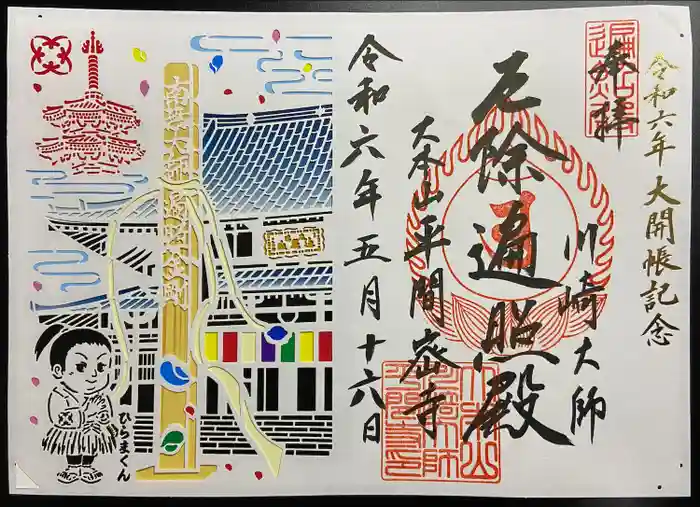 令和六年大開帳記念
奉拝
川崎大師
厄除遍照殿
大本山平間密寺
令和六年五月十六日
ひらまくん